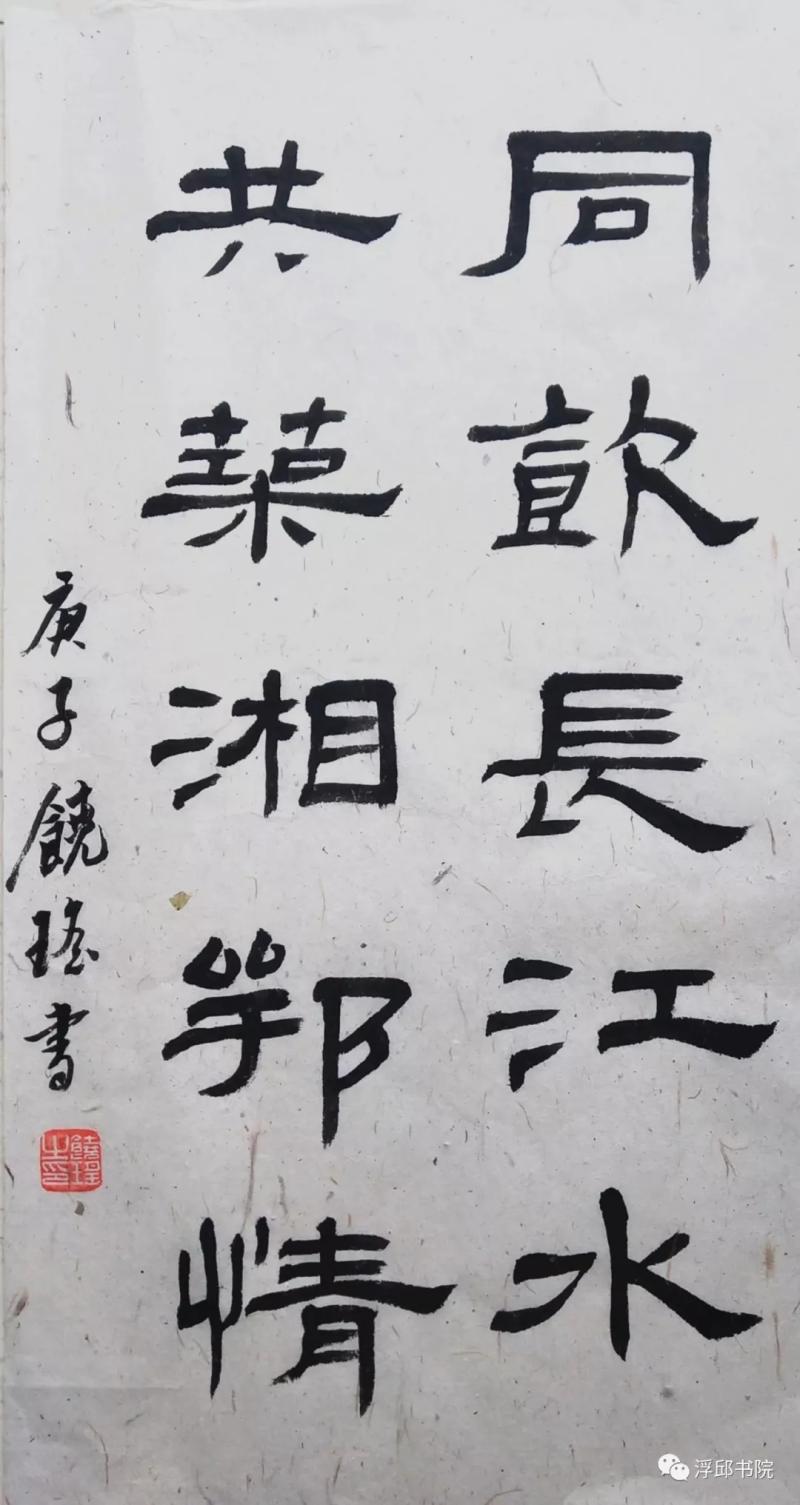 同飲長江水
共築湘鄂情
庚子饒瑤書
浮邱书院